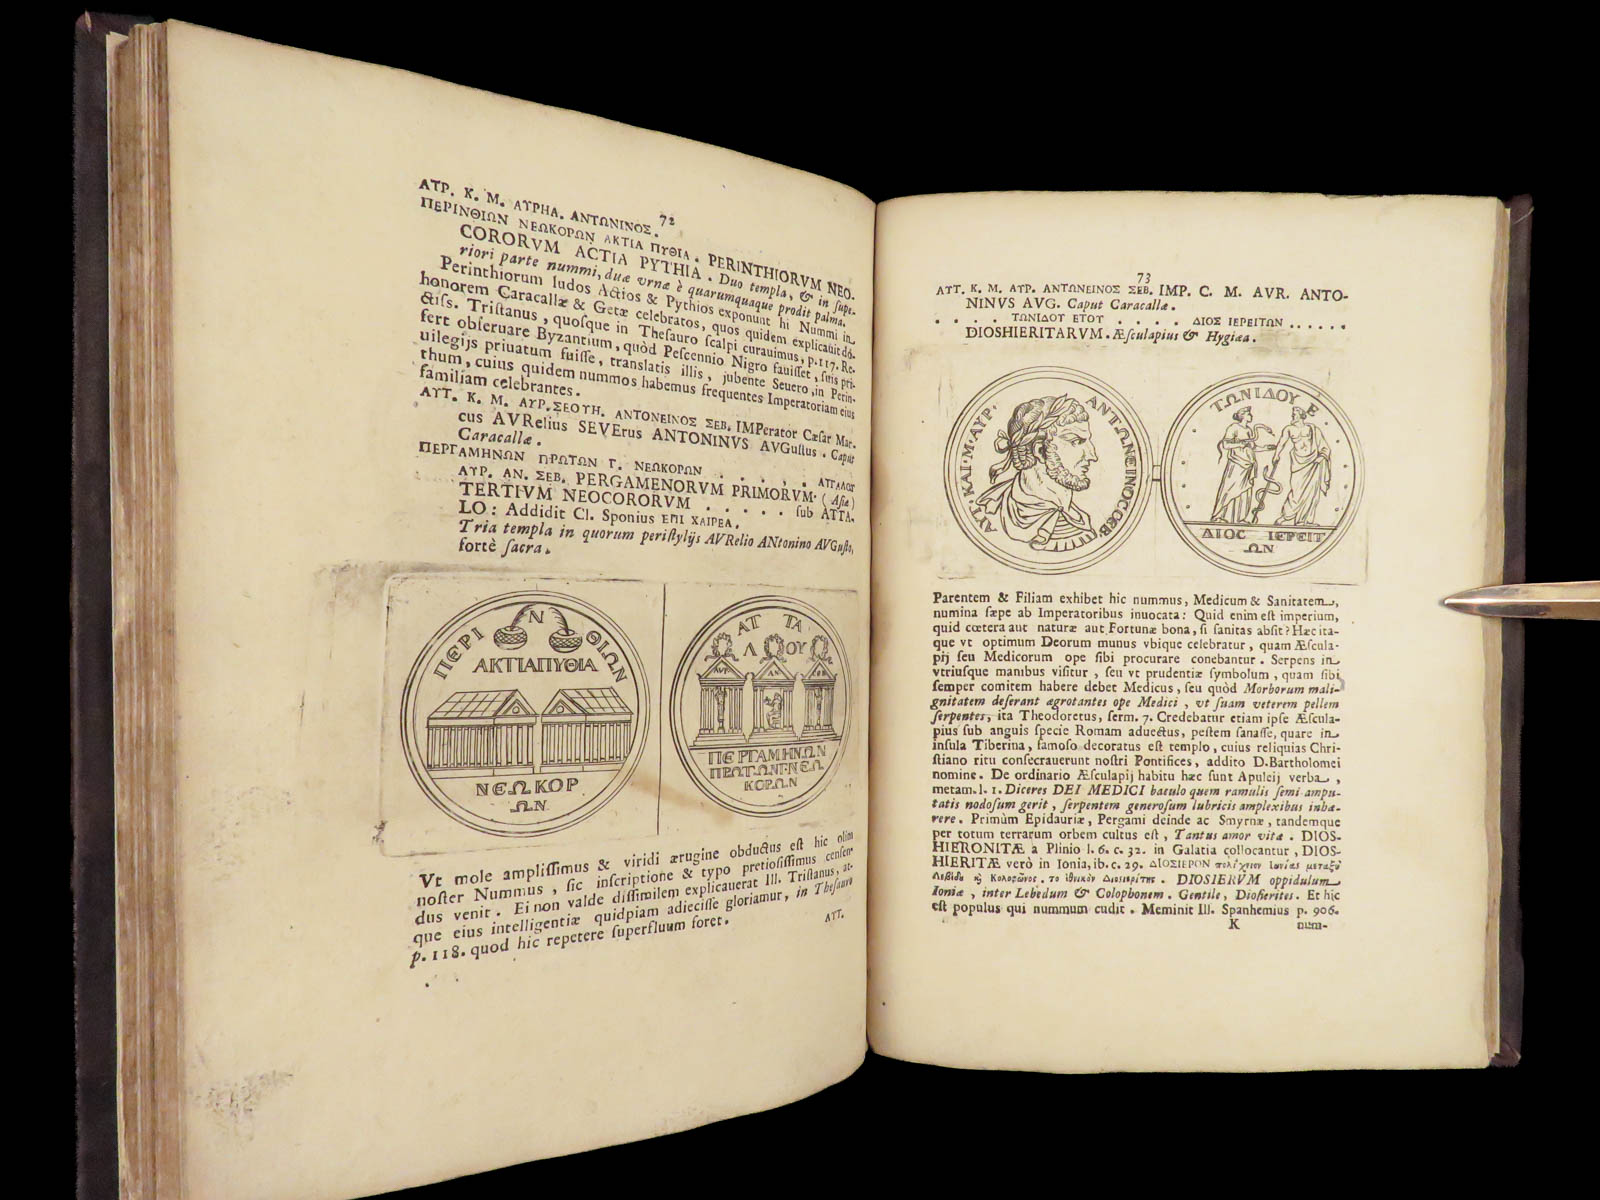 72
ΑΥΡ. Κ. Μ. ΑΥΡΗΛ. ΑΝΤΩΝΙΝΟΣ.
ΠΕΡΙΝΘΙΩΝ ΝΕΩΚΟΡΩΝ ΑΚΤΙΑ ΠΥΘΙΑ. PERINTHIORVM NEO-
CORORVM ACTIA PYTHIA. Duo templa, & in supe-
riori parte nummi, duæ vrnæ è quarumquaque prodit palma.
Perinthiorum ludos Actios & Pythios exponunt hi Nummi in
honorem Caracallæ & Getæ celebratos, quos quidem explicauit do-
ctiss. Tristanus, quosque in Thesauro scalpi curauimus, p. 117. Re-
fert obseruare Byzantium, quòd Pescennio Nigro fauisset, suis pri-
uilegijs priuatum fuisse, translatis illis, jubente Seuero, in Perin-
thum, cuius quidem nummos habemus frequentes Imperatoriam eius
familiam celebrantes.
ΑΥΤ. Κ. Μ. ΑΥΡ. ΣΕΟΥΗ. ΑΝΤΟΝΕΙΝΟΣ ΣΕΒ. IMPerator Cæsar Mar-
cus AVRelius SEVErus ANTONINVS AVGustus. Caput
Caracallæ.
ΠΕΡΓΑΜΗΝΩΝ ΠΡΩΤΩΝ Γ. ΝΕΩΚΟΡΩΝ . . . . . ΑΤΤΑΛΟΥ
ΑΥΡ. ΑΝ. ΣΕΒ. PERGAMENORVM PRIMORVM (Asiæ)
TERTIVM NEOCORORVM . . . . . sub ATTA-
LO: Addidit Cl. Sponius ΕΠΙ ΧΑΙΡΕΑ.
Tria templa in quorum peristylijs AVRelio ANtonino AVGusto,
fortè sacra.
ΠΕΡΙΝΘΙΩΝ
ΑΚΤΙΑΠΥΘΙΑ
ΝΕΩΚΟΡ
ΩΝ
ΑΤ ΤΑ
Λ ΟΥ
ΑΥΤ ΑΝ
ΠΕΡΓΑΜΗΝΩΝ
ΠΡΩΤΩΝΓΝΕΩ
ΚΟΡΩΝ
Vt mole amplissimus & viridi ærugine obductus est hic olim
noster Nummus, sic inscriptione & typo pretiosissimus censen-
dus venit. Ei non valde dissimilem explicauerat Ill. Tristanus, at-
que eius intelligentiæ quidpiam adiecisse gloriamur, in Thesauro
p. 118. quod hic repetere superfluum foret.
ΑΥΤ.
73
ΑΥΤ. Κ. Μ. ΑΥΡ. ΑΝΤΩΝΕΙΝΟΣ ΣΕΒ. IMP. C. M. AVR. ANTO-
NINVS AVG. Caput Caracallæ.
. . . . ΤΩΝΙΔΟΥ ΕΤΟΥ . . . . ΔΙΟΣ ΙΕΡΕΙΤΩΝ . . . . . .
DIOSHIERITARVM. Æsculapius & Hygiæa.
ΑΥΤ·ΚΑΙ·Μ·ΑΥΡ· ΑΝΤΩΝΕΙΝΟCCΕΒ·
ΤΩΝΙΔΟΥ Ε
ΔΙΟC ΙΕΡΕΙΤ
ΩΝ
Parentem & Filiam exhibet hic nummus, Medicum & Sanitatem,
numina sæpe ab Imperatoribus inuocata: Quid enim est imperium,
quid cœtera aut naturæ aut Fortunæ bona, si sanitas absit? Hæc ita-
que vt optimum Deorum munus vbique celebratur, quam Æscula-
pij seu Medicorum ope sibi procurare conebantur. Serpens in
vtriusque manibus visitur, seu vt prudentiæ symbolum, quam sibi
semper comitem habere debet Medicus, seu quòd Morborum mali-
gnitatem deferant ægrotantes ope Medici, vt suam veterem pellem
serpentes, ita Theodoretus, serm. 7. Credebatur etiam ipse Æscula-
pius sub anguis specie Romam aduectus, pestem sanasse, quare in
insula Tiberina, famoso decoratus est templo, cuius reliquias Chri-
stiano ritu consecrauerunt nostri Pontifices, addito D. Bartholomei
nomine. De ordinario Æsculapij habitu hæc sunt Apuleij verba,
metam. l. 1. Diceres DEI MEDICI baculo quem ramulis semi ampu-
tatis nodosum gerit, serpentem generosum lubricis amplexibus inhæ-
rere. Primùm Epidauriæ, Pergami deinde ac Smyrnæ, tandemque
per totum terrarum orbem cultus est, Tantus amor vitæ. DIOS-
HIERONITÆ a Plinio l. 6. c. 32. in Galatia collocantur, DIOS-
HIERITÆ verò in Ionia, ib. c. 29. ΔΙΟΣΙΕΡΟΝ πολίχνιον Ιωνίας μεταξὺ
Λεβέδου κ̀ Κολοφῶνος. το ἐθνικὸν Διοσιερίτης. DIOSIERVM oppidulum
Ioniæ, inter Lebedum & Colophonem. Gentile, Diosierites. Et hic
est populus qui nummum cudit. Meminit Ill. Spanhemius p. 906.
K num-